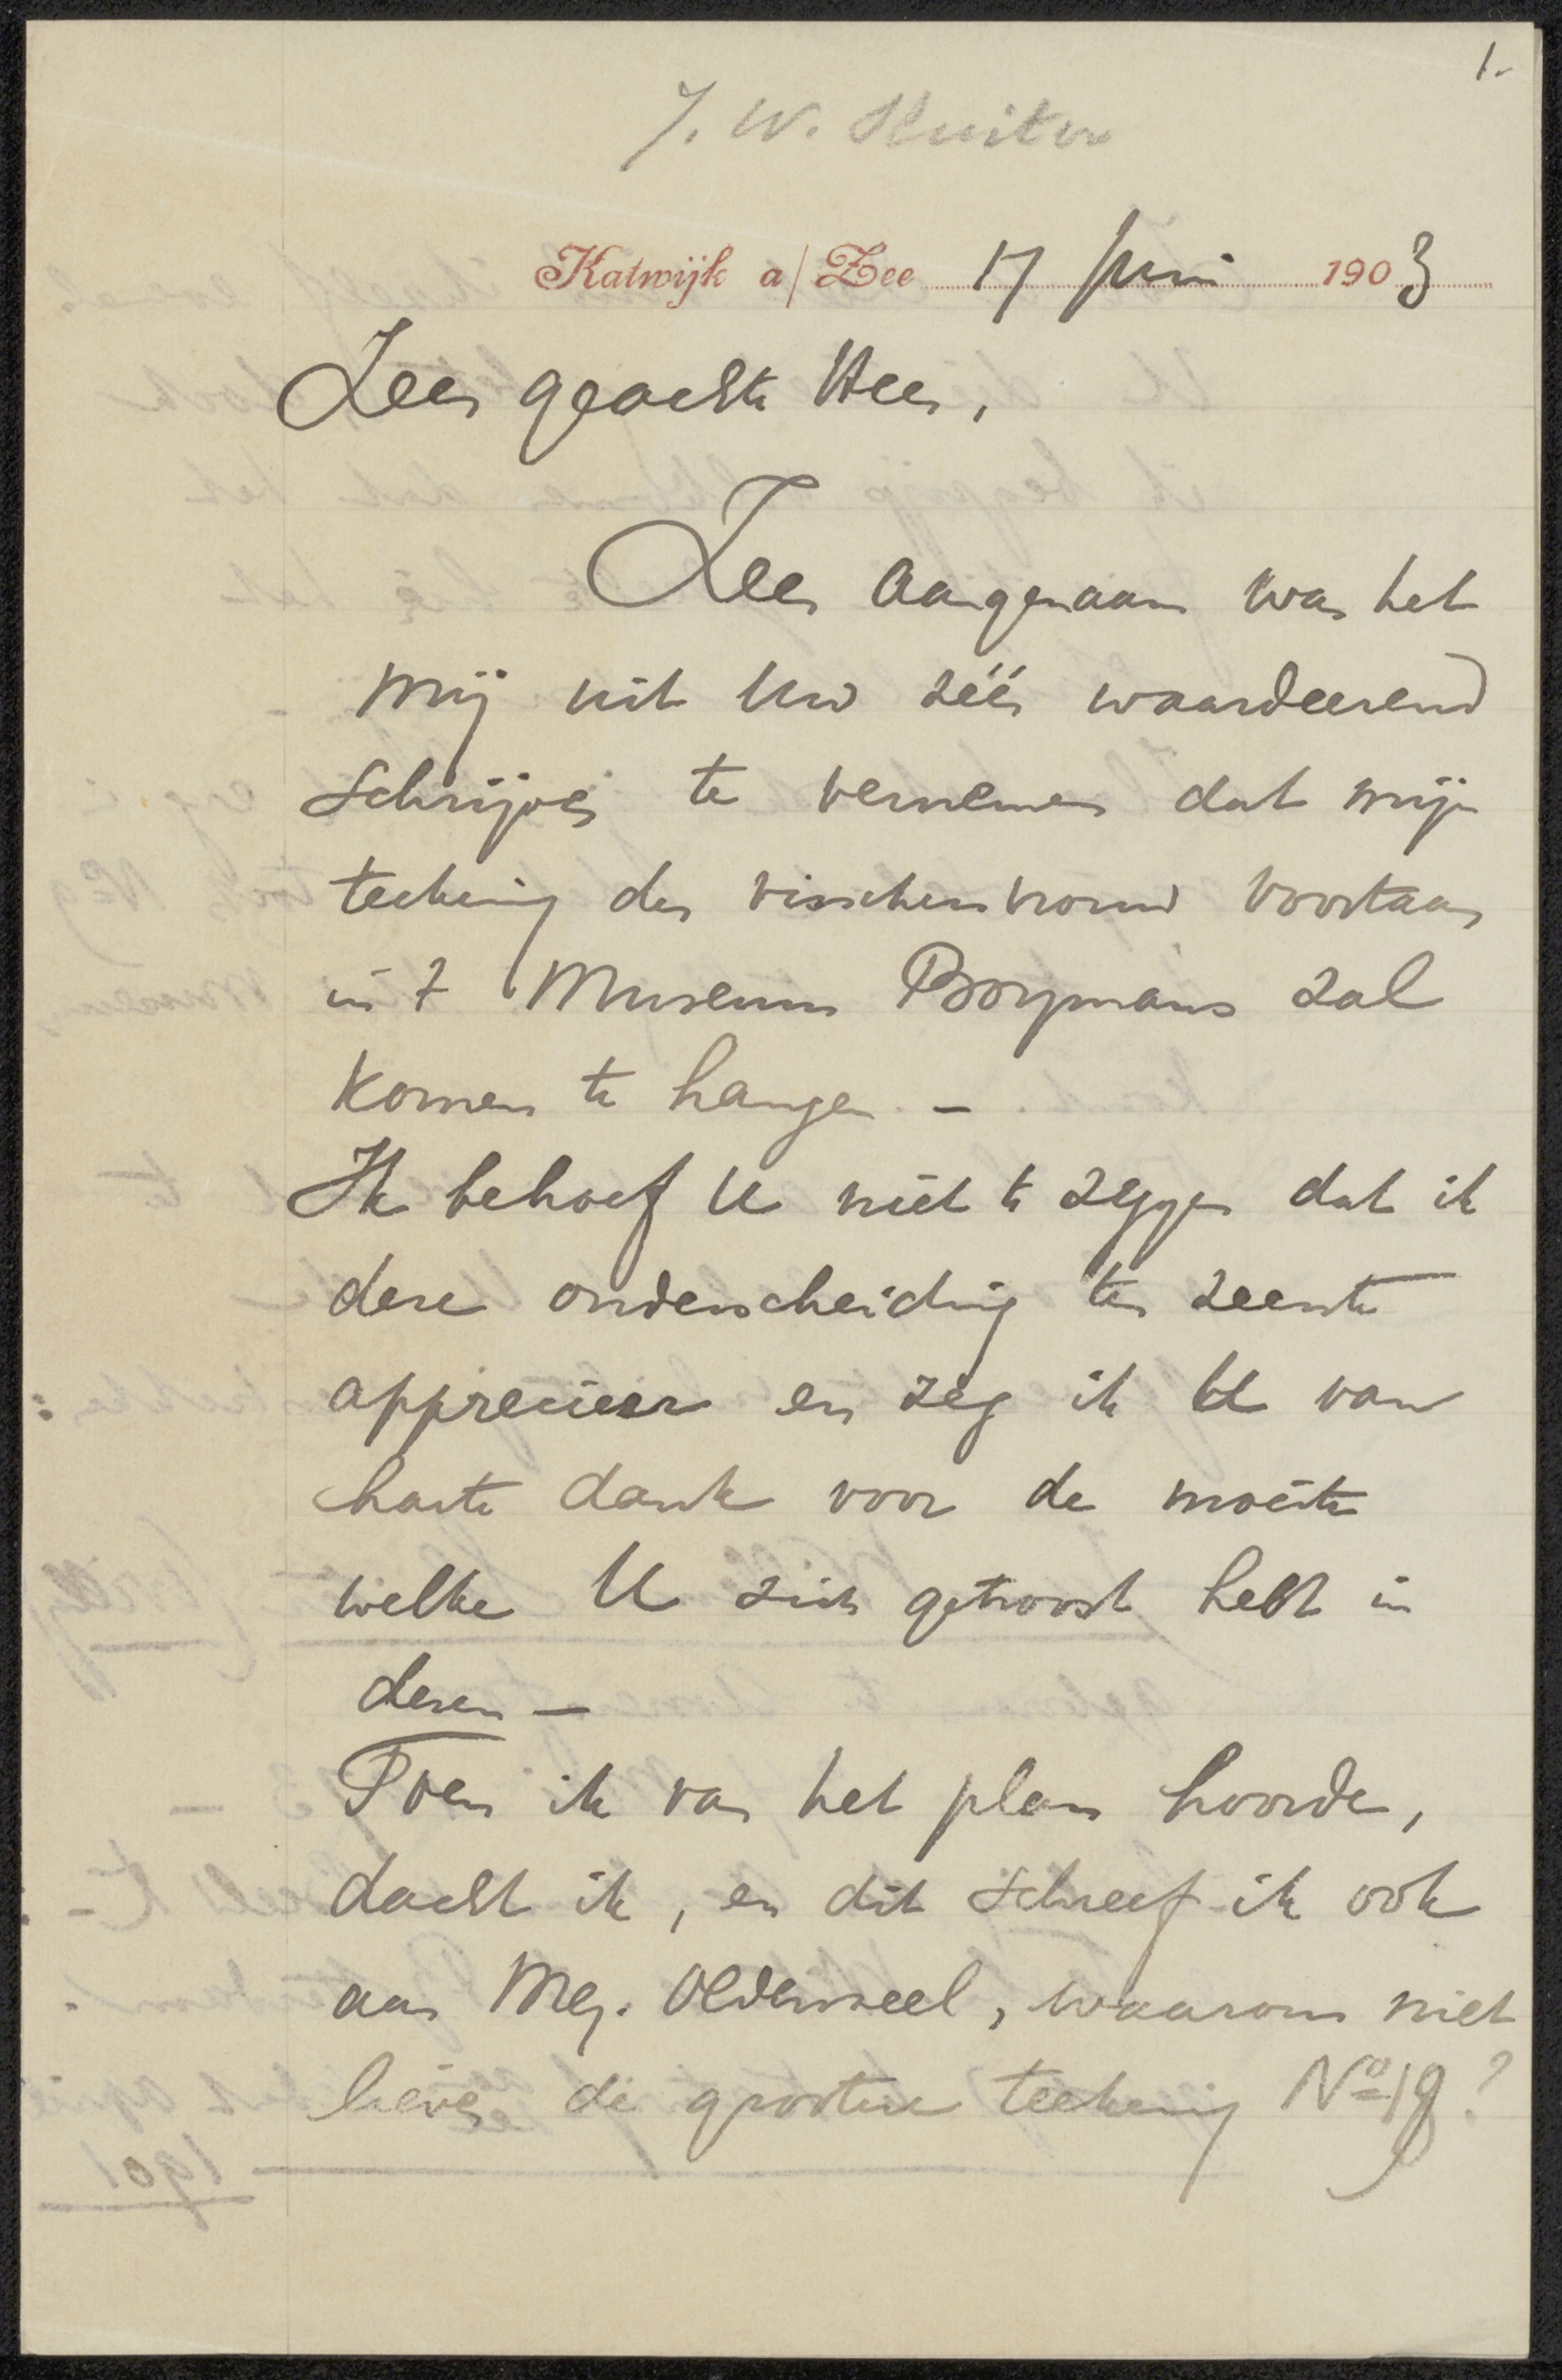 1.
J. W. Kuiter
Katwijk a/Zee 17 Juni 1903
Zeer geachte Heer,
Zeer aangenaam was het
mij uit Uw zéér waardeerend
schrijven te vernemen dat mijn
teekening der visschersvrouw voortaan
in 't Museum Boymans zal
komen te hangen. —
Ik behoef U niet te zeggen dat ik
deze onderscheiding ten zeerste
apprecieer en zeg ik U van
harte dank voor de moeite
welke U zich getroost hebt in
dezen —
Toen ik van het plan hoorde,
dacht ik, en dit schreef ik ook
aan Mej. Oldenzeel, waarom niet
liever de grootere teekening No 19?